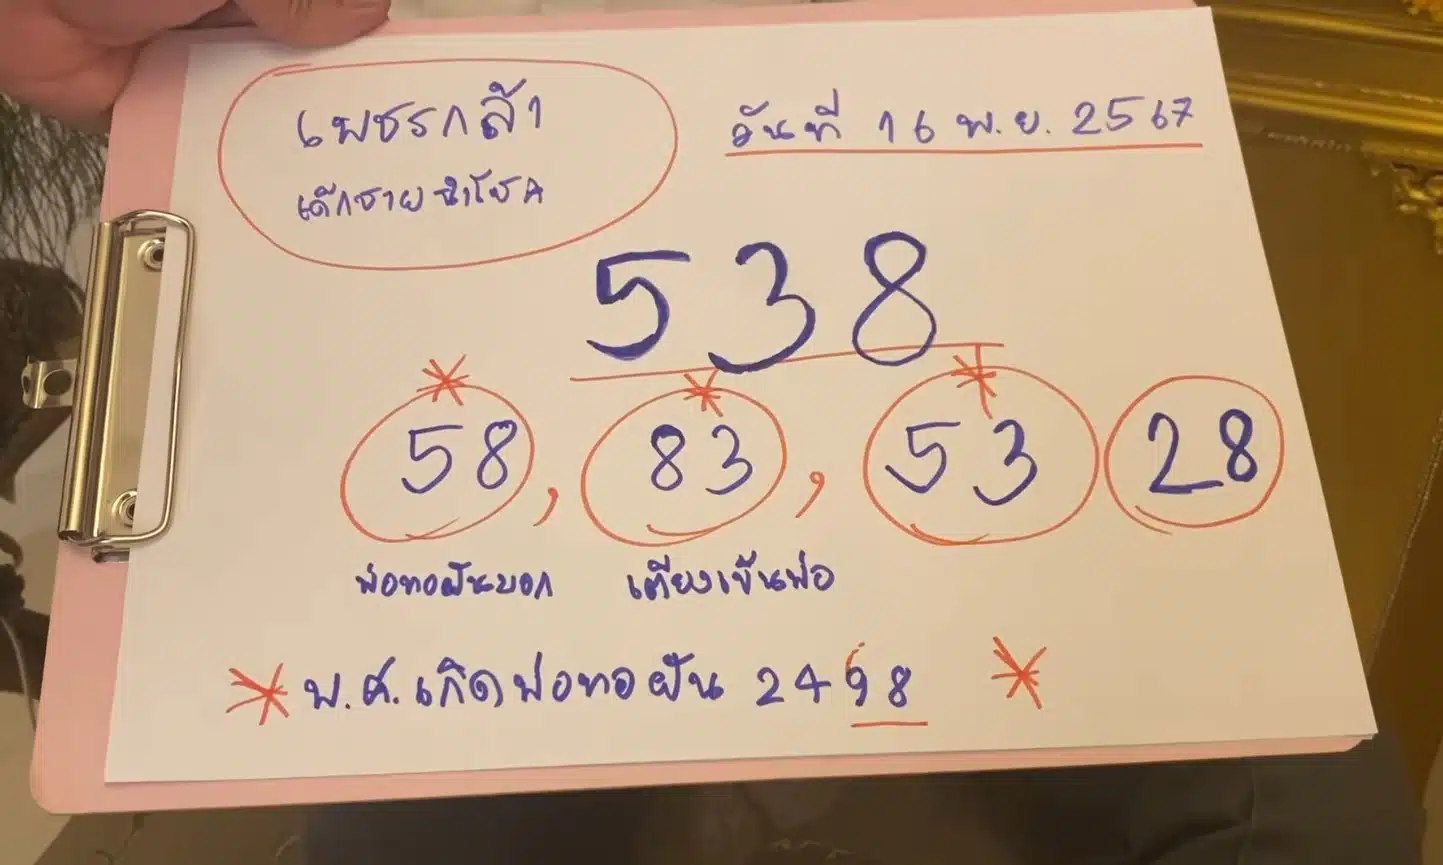 เพชรกล้า
เด็กชายนำโชค
วันที่ 16 พ.ย. 2567
538
58, 83, 53 28
พ่อทอฝันบอก เตียงเข็นพ่อ
พ.ศ.เกิดพ่อทอฝัน 2498